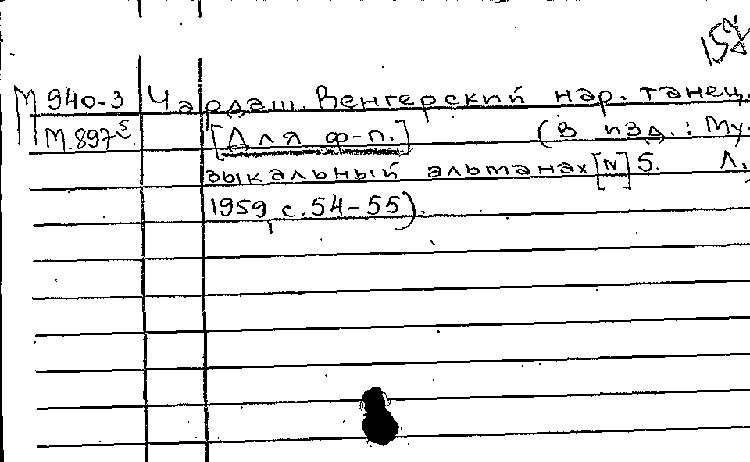 М 940-3 Чардаш. Венгерский нар. танец.
М 897 [Для ф-п.] (в изд.: Му-
зыкальный альманах [N] 5. Л.,
1959 с. 54-55).